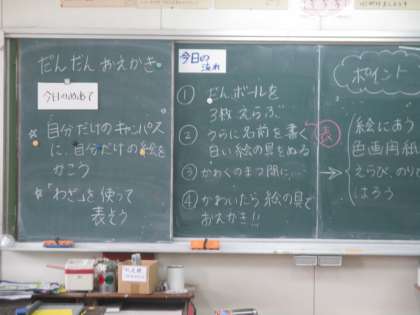 だんだんおえかき
今日のめあて
☆自分だけのキャンパス
に、自分だけの絵を
かこう
☆「わざ」を使って
表そう
今日の
流れ
① だんボールを
3枚えらぶ
② うらに名前を書く
白い絵の具をぬる
③ かわくのまつ間に…
④ かわいたら絵の具で
おえかき!!
ポイント
絵にあう
色画用紙
えらび、のりで
はろう